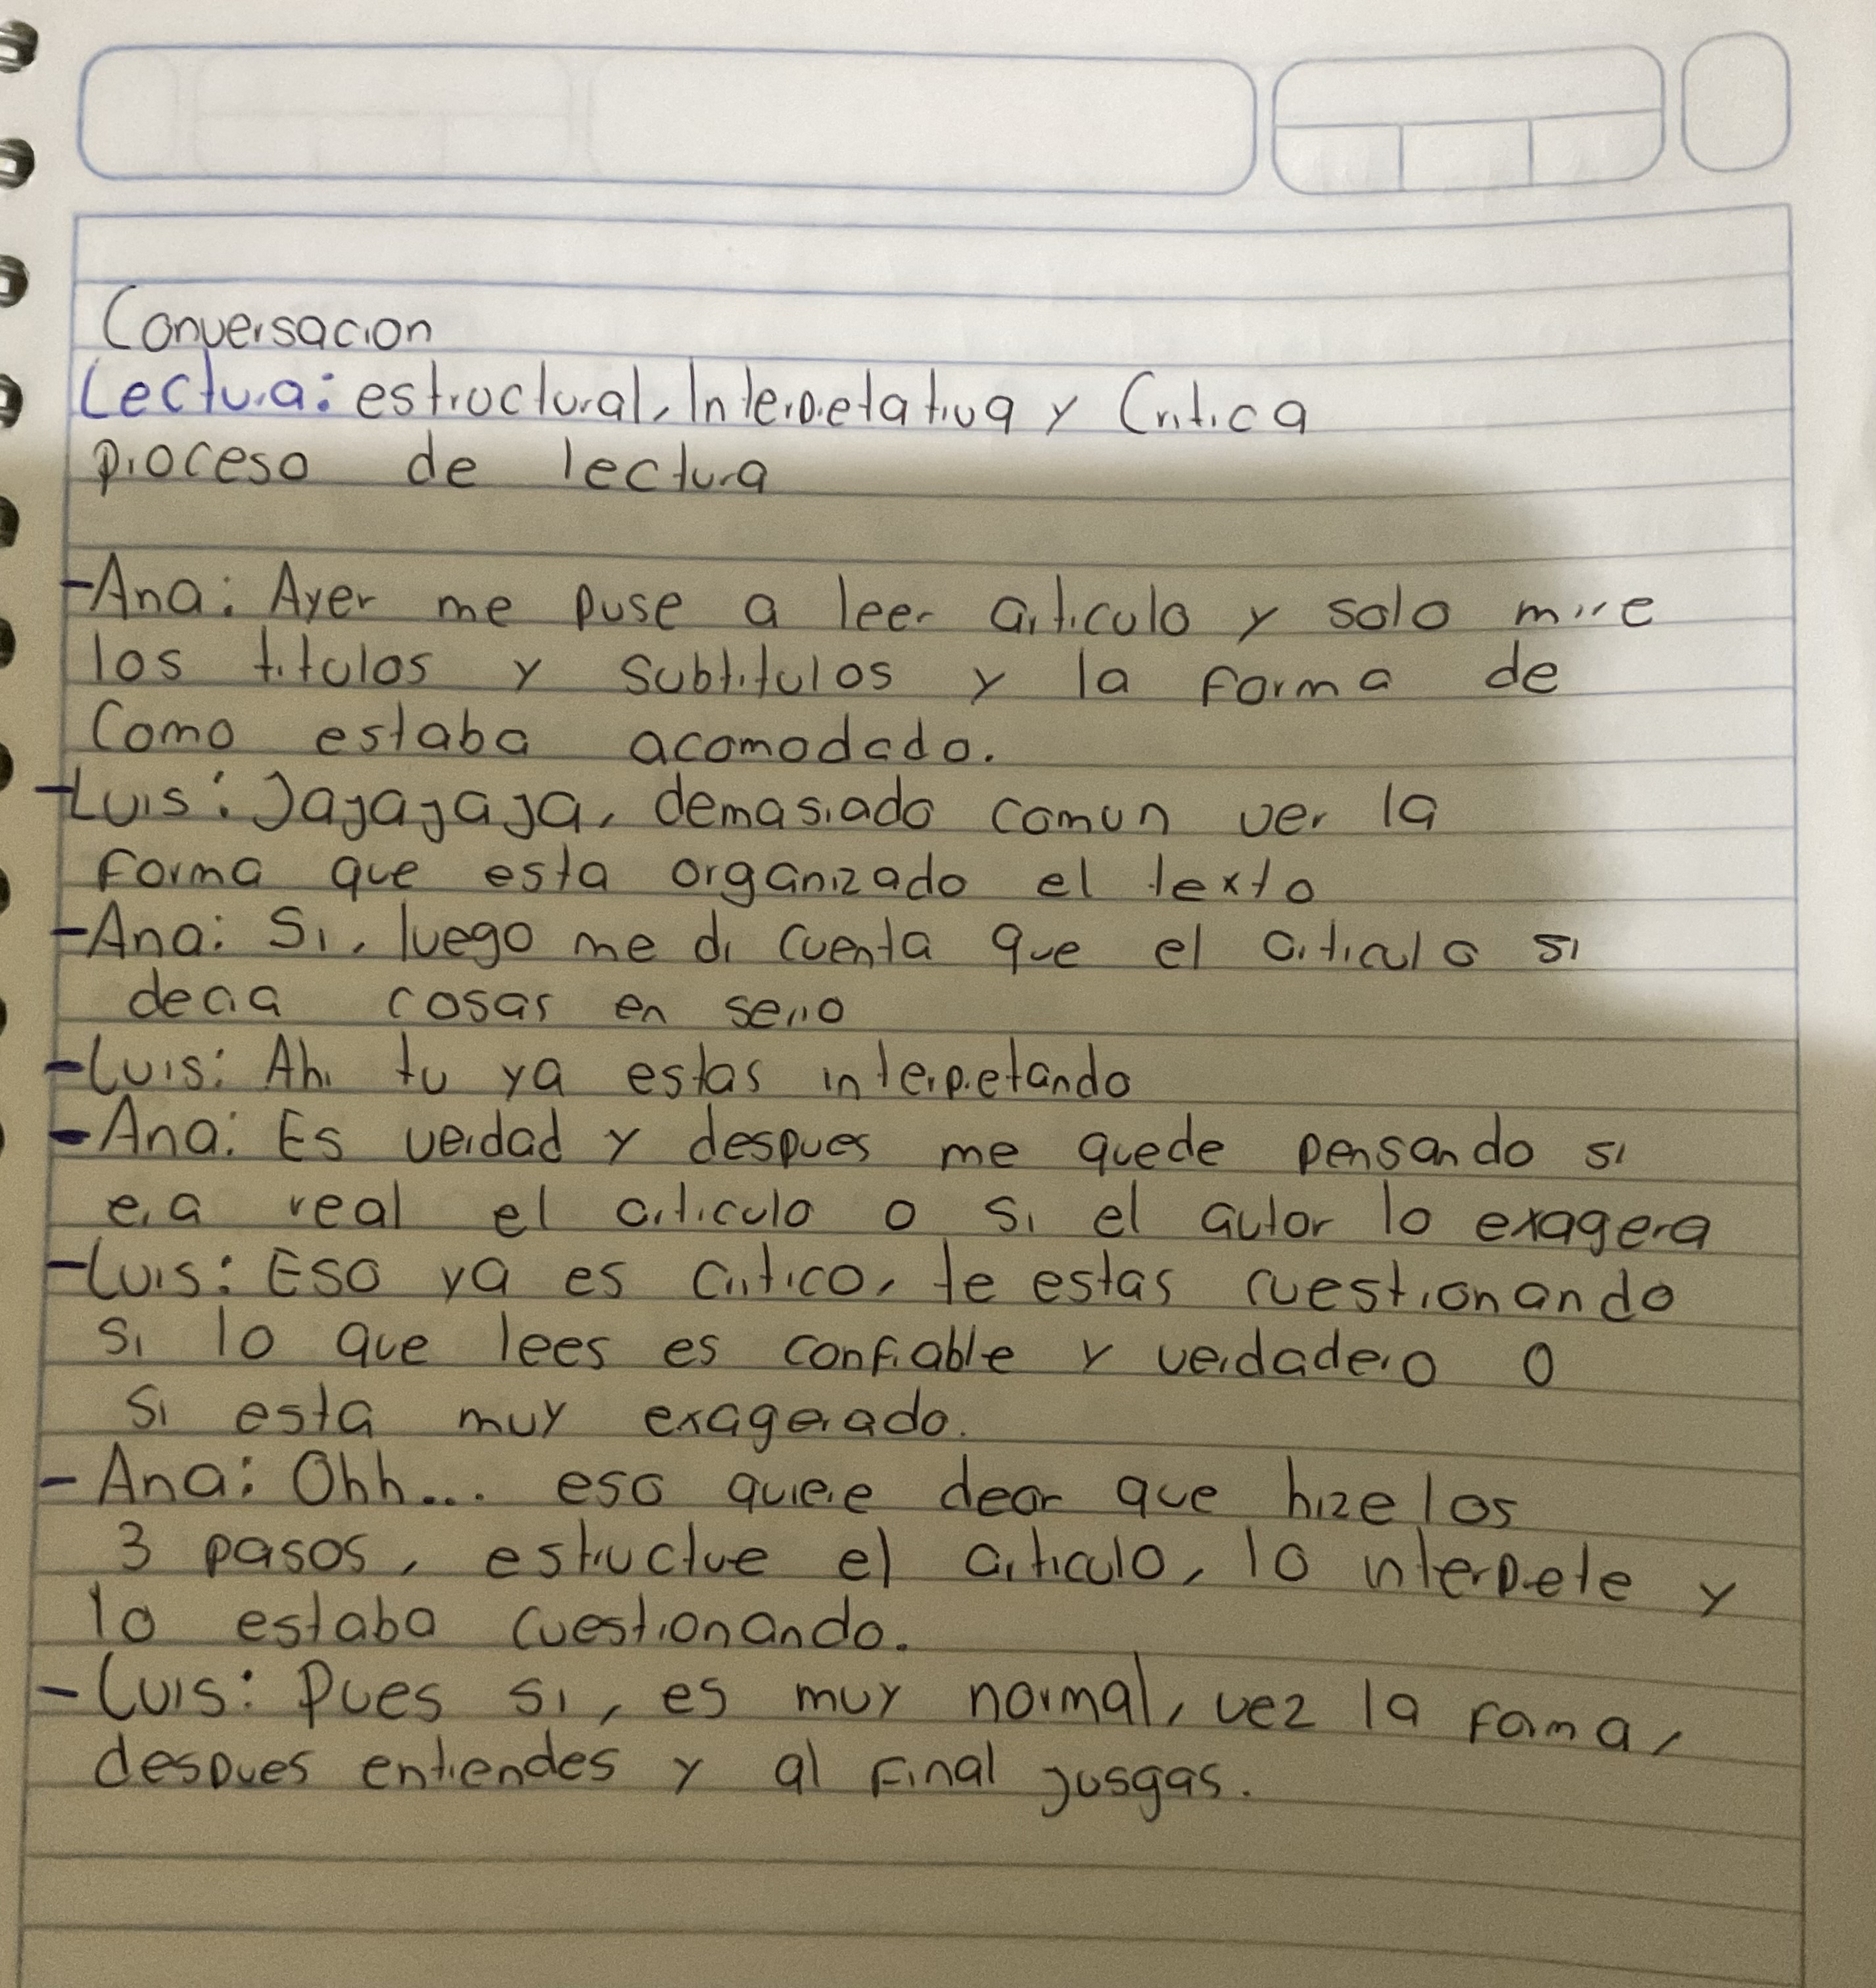 Conversacion
Lectura: estructural, Interpretativa y Critica
proceso de lectura
-Ana: Ayer me puse a leer articulo y solo mire
los titulos y subtitulos y la forma de
Como estaba acomodado.
-Luis: Jajajaja, demasiado comun ver la
forma que esta organizado el texto
-Ana: Si, luego me di cuenta que el articulo si
decia cosas en serio
-Luis: Ahi tu ya estas interpretando
-Ana: Es verdad y despues me quede pensando si
era real el articulo o si el autor lo exagera
-Luis: Eso ya es critico, te estas cuestionando
si lo que lees es confiable y verdadero o
si esta muy exagerado.
-Ana: Ohh... eso quiere decir que hize los
3 pasos, estructue el articulo, lo interprete y
lo estaba cuestionando.
-Luis: Pues si, es muy normal, vez la forma,
despues entiendes y al final jusgas.